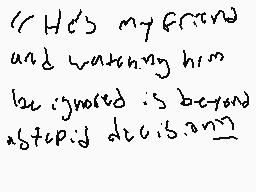 "He's my friend
and watching him
be ignored is beyond
a stupid decision"